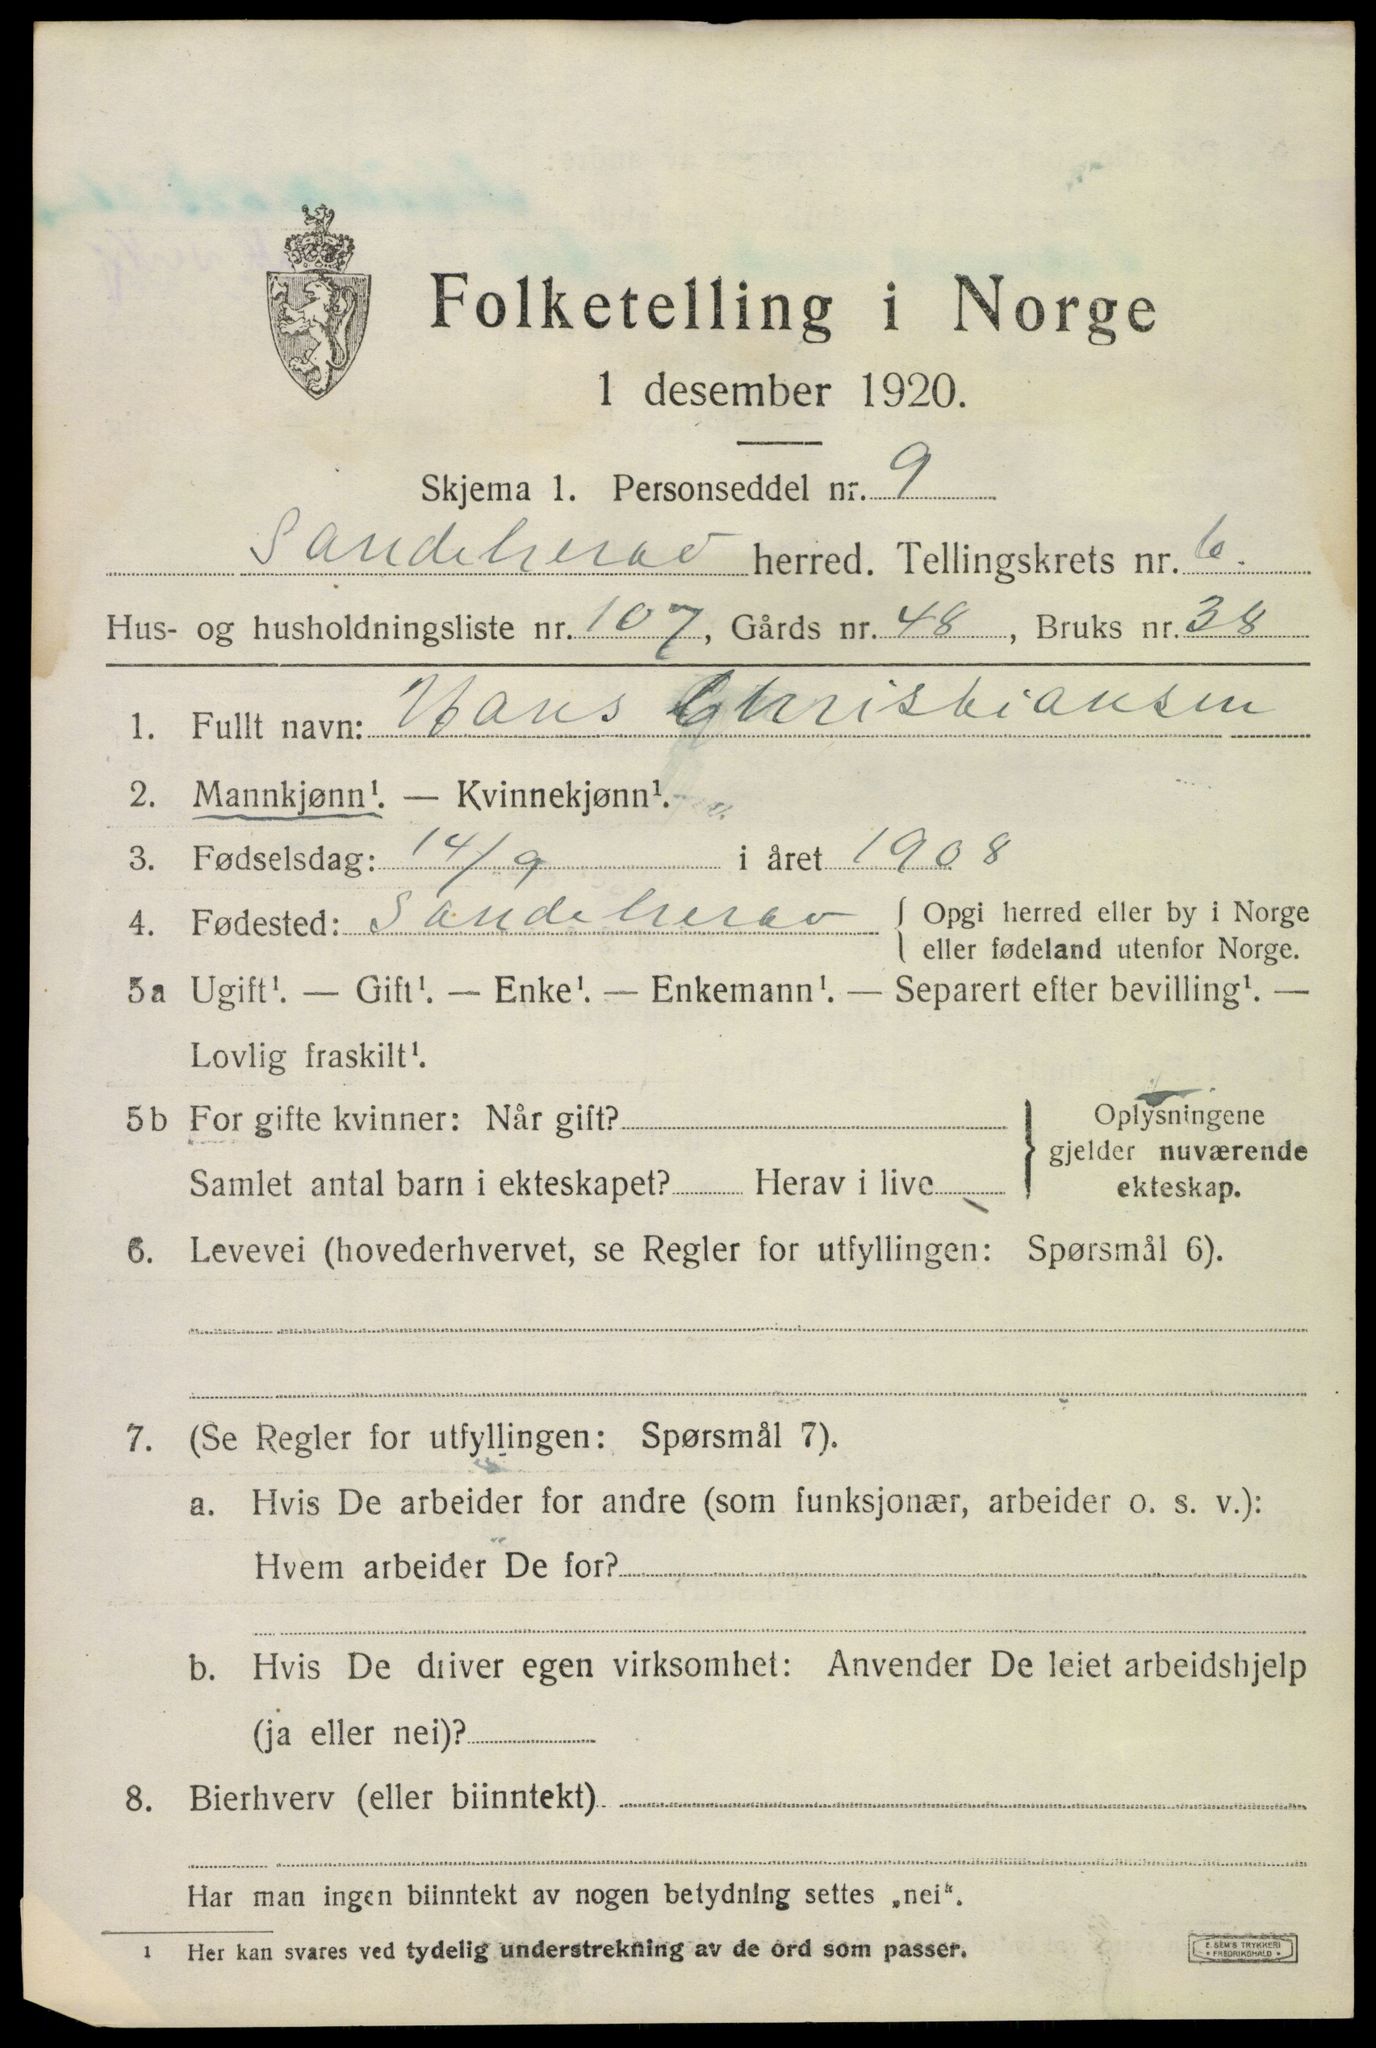 Folketelling i Norge
1 desember 1920.
Skjema 1. Personseddel nr. 9
Sandeherad herred. Tellingskrets nr. 6.
Hus- og husholdningsliste nr. 107, Gårds nr. 48, Bruks nr. 38
1. Fullt navn: Hans Christiansen
2. Mannkjønn¹. — Kvinnekjønn¹.
3. Fødselsdag: 14/9 i året 1908
4. Fødested: Sandeherad { Opgi herred eller by i Norge
eller fødeland utenfor Norge.
5a Ugift¹. — Gift¹. — Enke¹. — Enkemann¹. — Separert efter bevilling¹. —
Lovlig fraskilt¹.
5b For gifte kvinner: Når gift?
Samlet antal barn i ekteskapet? Herav i live
} Oplysningene
gjelder nuværende
ekteskap.
6. Levevei (hovederhvervet, se Regler for utfyllingen: Spørsmål 6).
7. (Se Regler for utfyllingen: Spørsmål 7).
a. Hvis De arbeider for andre (som funksjonær, arbeider o. s. v.):
Hvem arbeider De for?
b. Hvis De driver egen virksomhet: Anvender De leiet arbeidshjelp
(ja eller nei)?
8. Bierhverv (eller biinntekt)
Har man ingen biinntekt av nogen betydning settes „nei“.
¹ Her kan svares ved tydelig understrekning av de ord som passer.
E. SEM'S TRYKKERI
* FREDRIKSHALD *